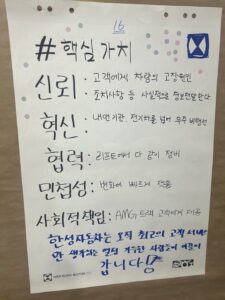 16
#핵심가치
신뢰: 고객에게 차량의 고장원인
조치사항 등 사실적으로 정보전달한다.
혁신: 내연기관, 전기차를 넘어 우주 비행선
협력: 리프트에서 다 같이 정비
민첩성: 변화에 빠르게 적응
사회적책임: AMG 트랙 고객에게 제공
한성자동차는 오직 최고의 고객 서비스
만 생각하는 열정 가득한 사람들이 이끌어
갑니다!